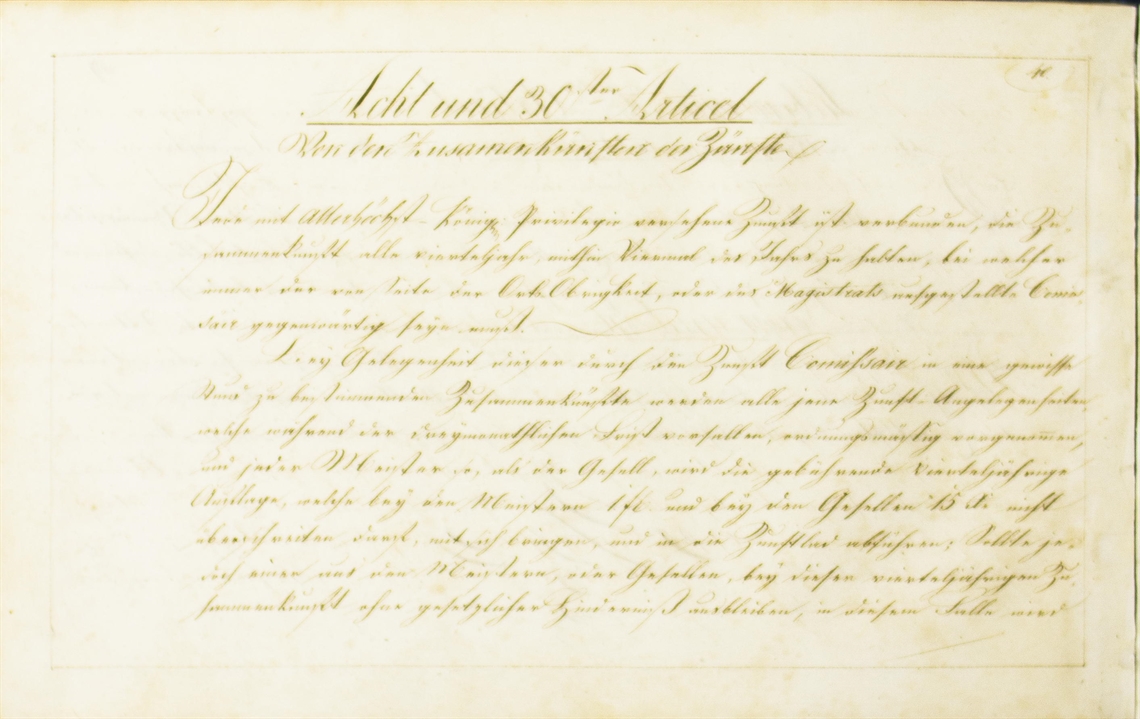 40.
Acht und 30ster Articel
Von den Zusamenkünften der Zünfte
Jede mit Allerhöchst-Königl: Privilegio versehene Zunft ist verbunden, die Zu-
sammenkunft alle vierteljahr, mithin Viermal des Jahrs zu halten, bei welcher
immer der von Seite der Orts Obrigkeit, oder des Magistrats aufgestellte Comis-
sair gegenwärtig seyn muß.
Bey Gelegenheit dieser durch den Zunft Comissair in eine gewisse
Stund zu bestimmenden Zusammenkünfte werden alle jene Zunft-Angelegenheiten,
welche während der dreymonathlichen Frist vorfallen, ordnungsmässig vorgenommen,
und jeder Meister so, als der Gesell, wird die gebührende vierteljährige
Auflage, welche bey den Meistern 1 fl. und bey den Gesellen 15 Xr nicht
überschreiten darf, mit sich bringen, und in die Zunftlad abführen; Sollte je-
doch einer aus den Meistern, oder Gesellen, bey dieser vierteljährigen Zu-
sammenkunft ohne gesetzlicher Hinderniß ausbleiben, in diesem Falle wird